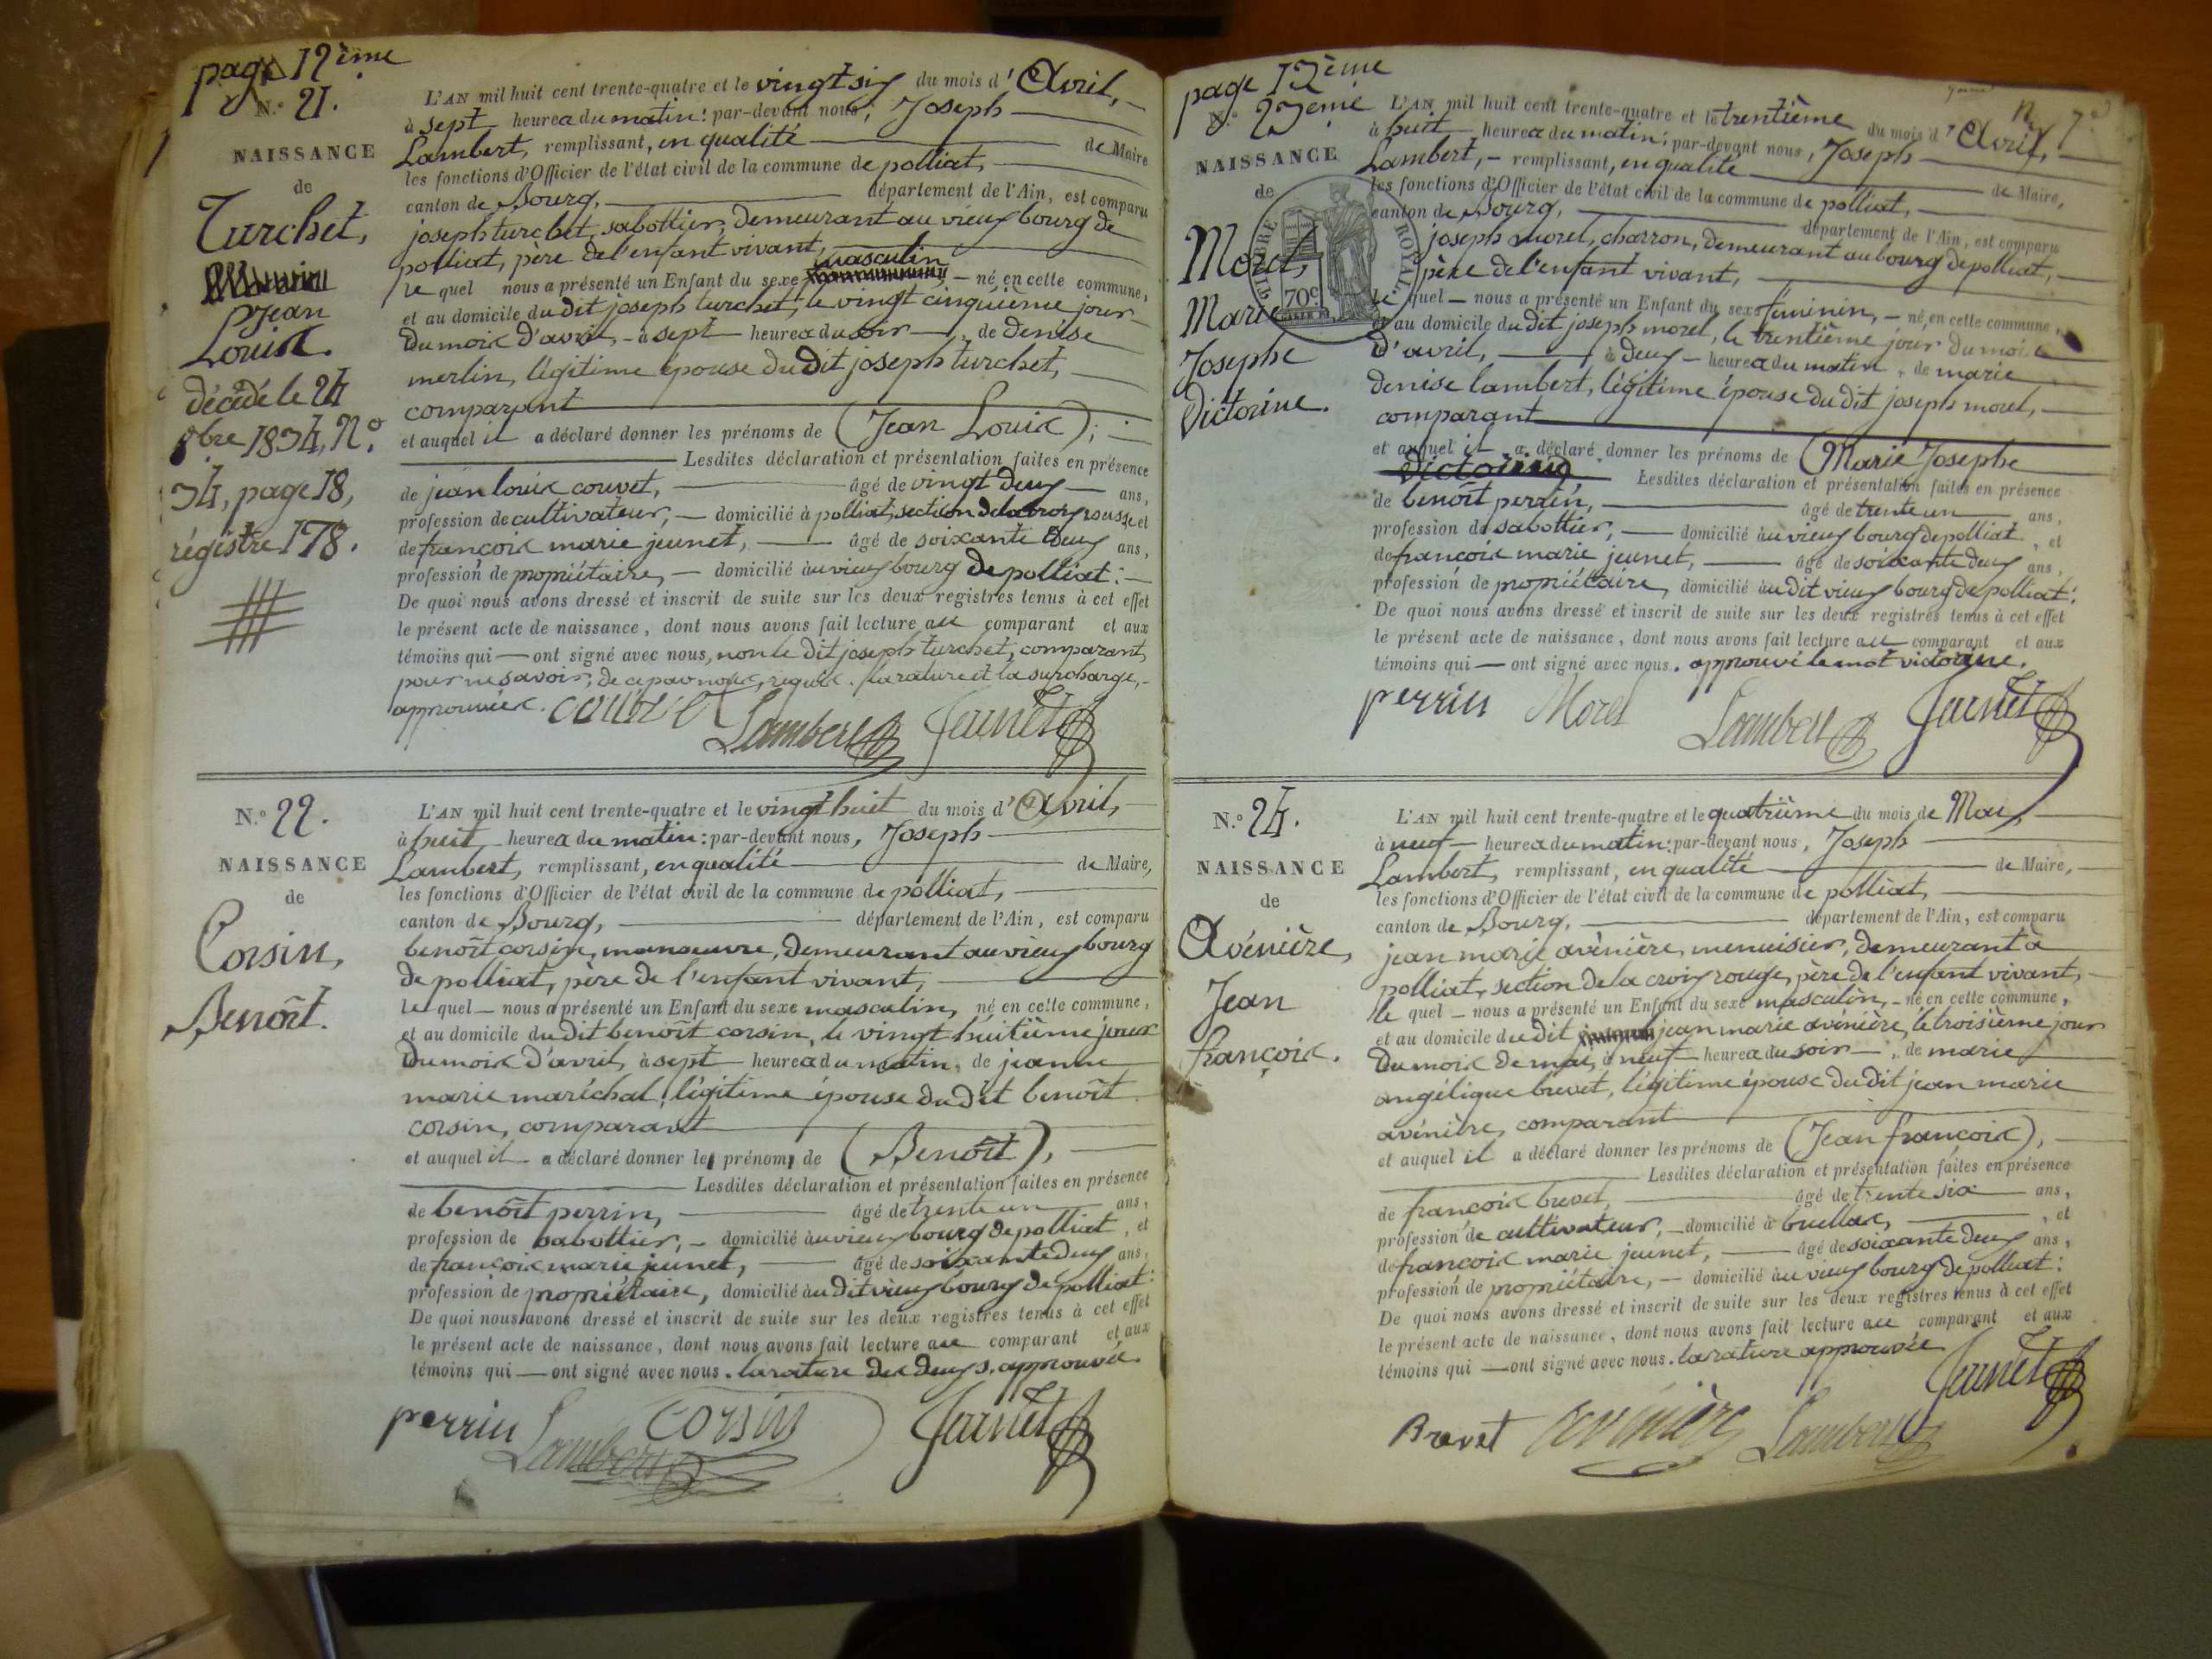 page 12ème
N.° 21.
NAISSANCE
de
Turchet,
Jean
Louis.
décédé le 24
8bre 1834, N.°
34, page 18,
régistre 178.
L'AN mil huit cent trente-quatre et le vingt six du mois d' Avril,
à sept heures du matin : par-devant nous, Joseph
Lambert, remplissant, en qualité de Maire
les fonctions d'Officier de l'état civil de la commune de polliat,
canton de Bourg, département de l'Ain, est comparu
joseph turchet, sabottier, demeurant au vieux bourg de
polliat, père de l'enfant vivant,
masculin
le quel nous a présenté un Enfant du sexe né, en cette commune,
et au domicile du dit joseph turchet, le vingt cinquième jour
du mois d'avril, à sept heures du soir, de denise
merlin, légitime épouse du dit joseph turchet,
comparant
et auquel il a déclaré donner les prénoms de (Jean Louis);
Lesdites déclaration et présentation faites en présence
de jean louis couvet, âgé de vingt deux ans,
profession de cultivateur, domicilié à polliat, section de la croix rousse et
de françois marie jeunet, âgé de soixante deux ans,
profession de propriétaire, domicilié au vieux bourg de polliat :
De quoi nous avons dressé et inscrit de suite sur les deux registres tenus à cet effet
le présent acte de naissance, dont nous avons fait lecture au comparant et aux
témoins qui ont signé avec nous, non le dit joseph turchet, comparant,
pour ne savoir, de ce par nous, requis. la rature et la surcharge,
approuvées. couvet Lambert Jeunet
N.° 22.
NAISSANCE
de
Corsin,
Benoît.
L'AN mil huit cent trente-quatre et le vingt huit du mois d' Avril,
à huit heures du matin : par-devant nous, Joseph
Lambert, remplissant, en qualité de Maire,
les fonctions d'Officier de l'état civil de la commune de polliat,
canton de Bourg, département de l'Ain, est comparu
benoît corsin, manœuvre, demeurant au vieux bourg
de polliat, père de l'enfant vivant,
le quel nous a présenté un Enfant du sexe masculin, né en cette commune,
et au domicile du dit benoît corsin, le vingt huitième jour
du mois d'avril, à sept heures du matin, de jeanne
marie maréchal, légitime épouse du dit benoît
corsin, comparant
et auquel il a déclaré donner le prénom de (Benoît),
Lesdites déclaration et présentation faites en présence
de benoît perrin, âgé de trente un ans,
profession de sabottier, domicilié au vieux bourg de polliat, et
de françois marie jeunet, âgé de soixante deux ans,
profession de propriétaire, domicilié au dit vieux bourg de polliat :
De quoi nous avons dressé et inscrit de suite sur les deux registres tenus à cet effet
le présent acte de naissance, dont nous avons fait lecture au comparant et aux
témoins qui ont signé avec nous. la rature des deux s. approuvée.
perrin Lambert Corsin Jeunet
page 13ème
N.° 23ème
NAISSANCE
de
Morel,
Marie
Josephe
Victorine.
TIMBRE ROYAL
70c
L'AN mil huit cent trente-quatre et le trentième du mois d' Avril,
à huit heures du matin ; par-devant nous, Joseph
Lambert, remplissant, en qualité de Maire,
les fonctions d'Officier de l'état civil de la commune de polliat,
canton de Bourg, département de l'Ain, est comparu
joseph morel, charron, demeurant au bourg de polliat,
père de l'enfant vivant,
le quel nous a présenté un Enfant du sexe féminin, né, en cette commune,
et au domicile du dit joseph morel, le trentième jour du mois
d'avril, à deux heures du matin, de marie
denise lambert, légitime épouse du dit joseph morel,
comparant
et auquel il a déclaré donner les prénoms de (Marie Josephe
Victorine) Lesdites déclaration et présentation faites en présence
de benoît perrin, âgé de trente un ans,
profession de sabottier, domicilié au vieux bourg de polliat, et
de françois marie jeunet, âgé de soixante deux ans,
profession de propriétaire, domicilié au dit vieux bourg de polliat :
De quoi nous avons dressé et inscrit de suite sur les deux registres tenus à cet effet
le présent acte de naissance, dont nous avons fait lecture au comparant et aux
témoins qui ont signé avec nous. approuvé le mot victorine.
perrin Morel Lambert Jeunet
N.° 24.
NAISSANCE
de
Avénière,
Jean
françois.
L'AN mil huit cent trente-quatre et le quatrième du mois de Mai,
à neuf heures du matin : par-devant nous, Joseph
Lambert, remplissant, en qualité de Maire,
les fonctions d'Officier de l'état civil de la commune de polliat,
canton de Bourg, département de l'Ain, est comparu
jean marie avénière, menuisier, demeurant à
polliat, section de la croix rouge, père de l'enfant vivant,
le quel nous a présenté un Enfant du sexe masculin, né en cette commune,
et au domicile du dit jean marie avénière, le troisième jour
du mois de mai, à neuf heures du soir, de marie
angélique brevet, légitime épouse du dit jean marie
avénière, comparant
et auquel il a déclaré donner les prénoms de (Jean françois),
Lesdites déclaration et présentation faites en présence
de françois brevet, âgé de trente six ans,
profession de cultivateur, domicilié à buellas, et
de françois marie jeunet, âgé de soixante deux ans,
profession de propriétaire, domicilié au vieux bourg de polliat :
De quoi nous avons dressé et inscrit de suite sur les deux registres tenus à cet effet
le présent acte de naissance, dont nous avons fait lecture au comparant et aux
témoins qui ont signé avec nous. la rature approuvée
Brevet avénière Lambert Jeunet